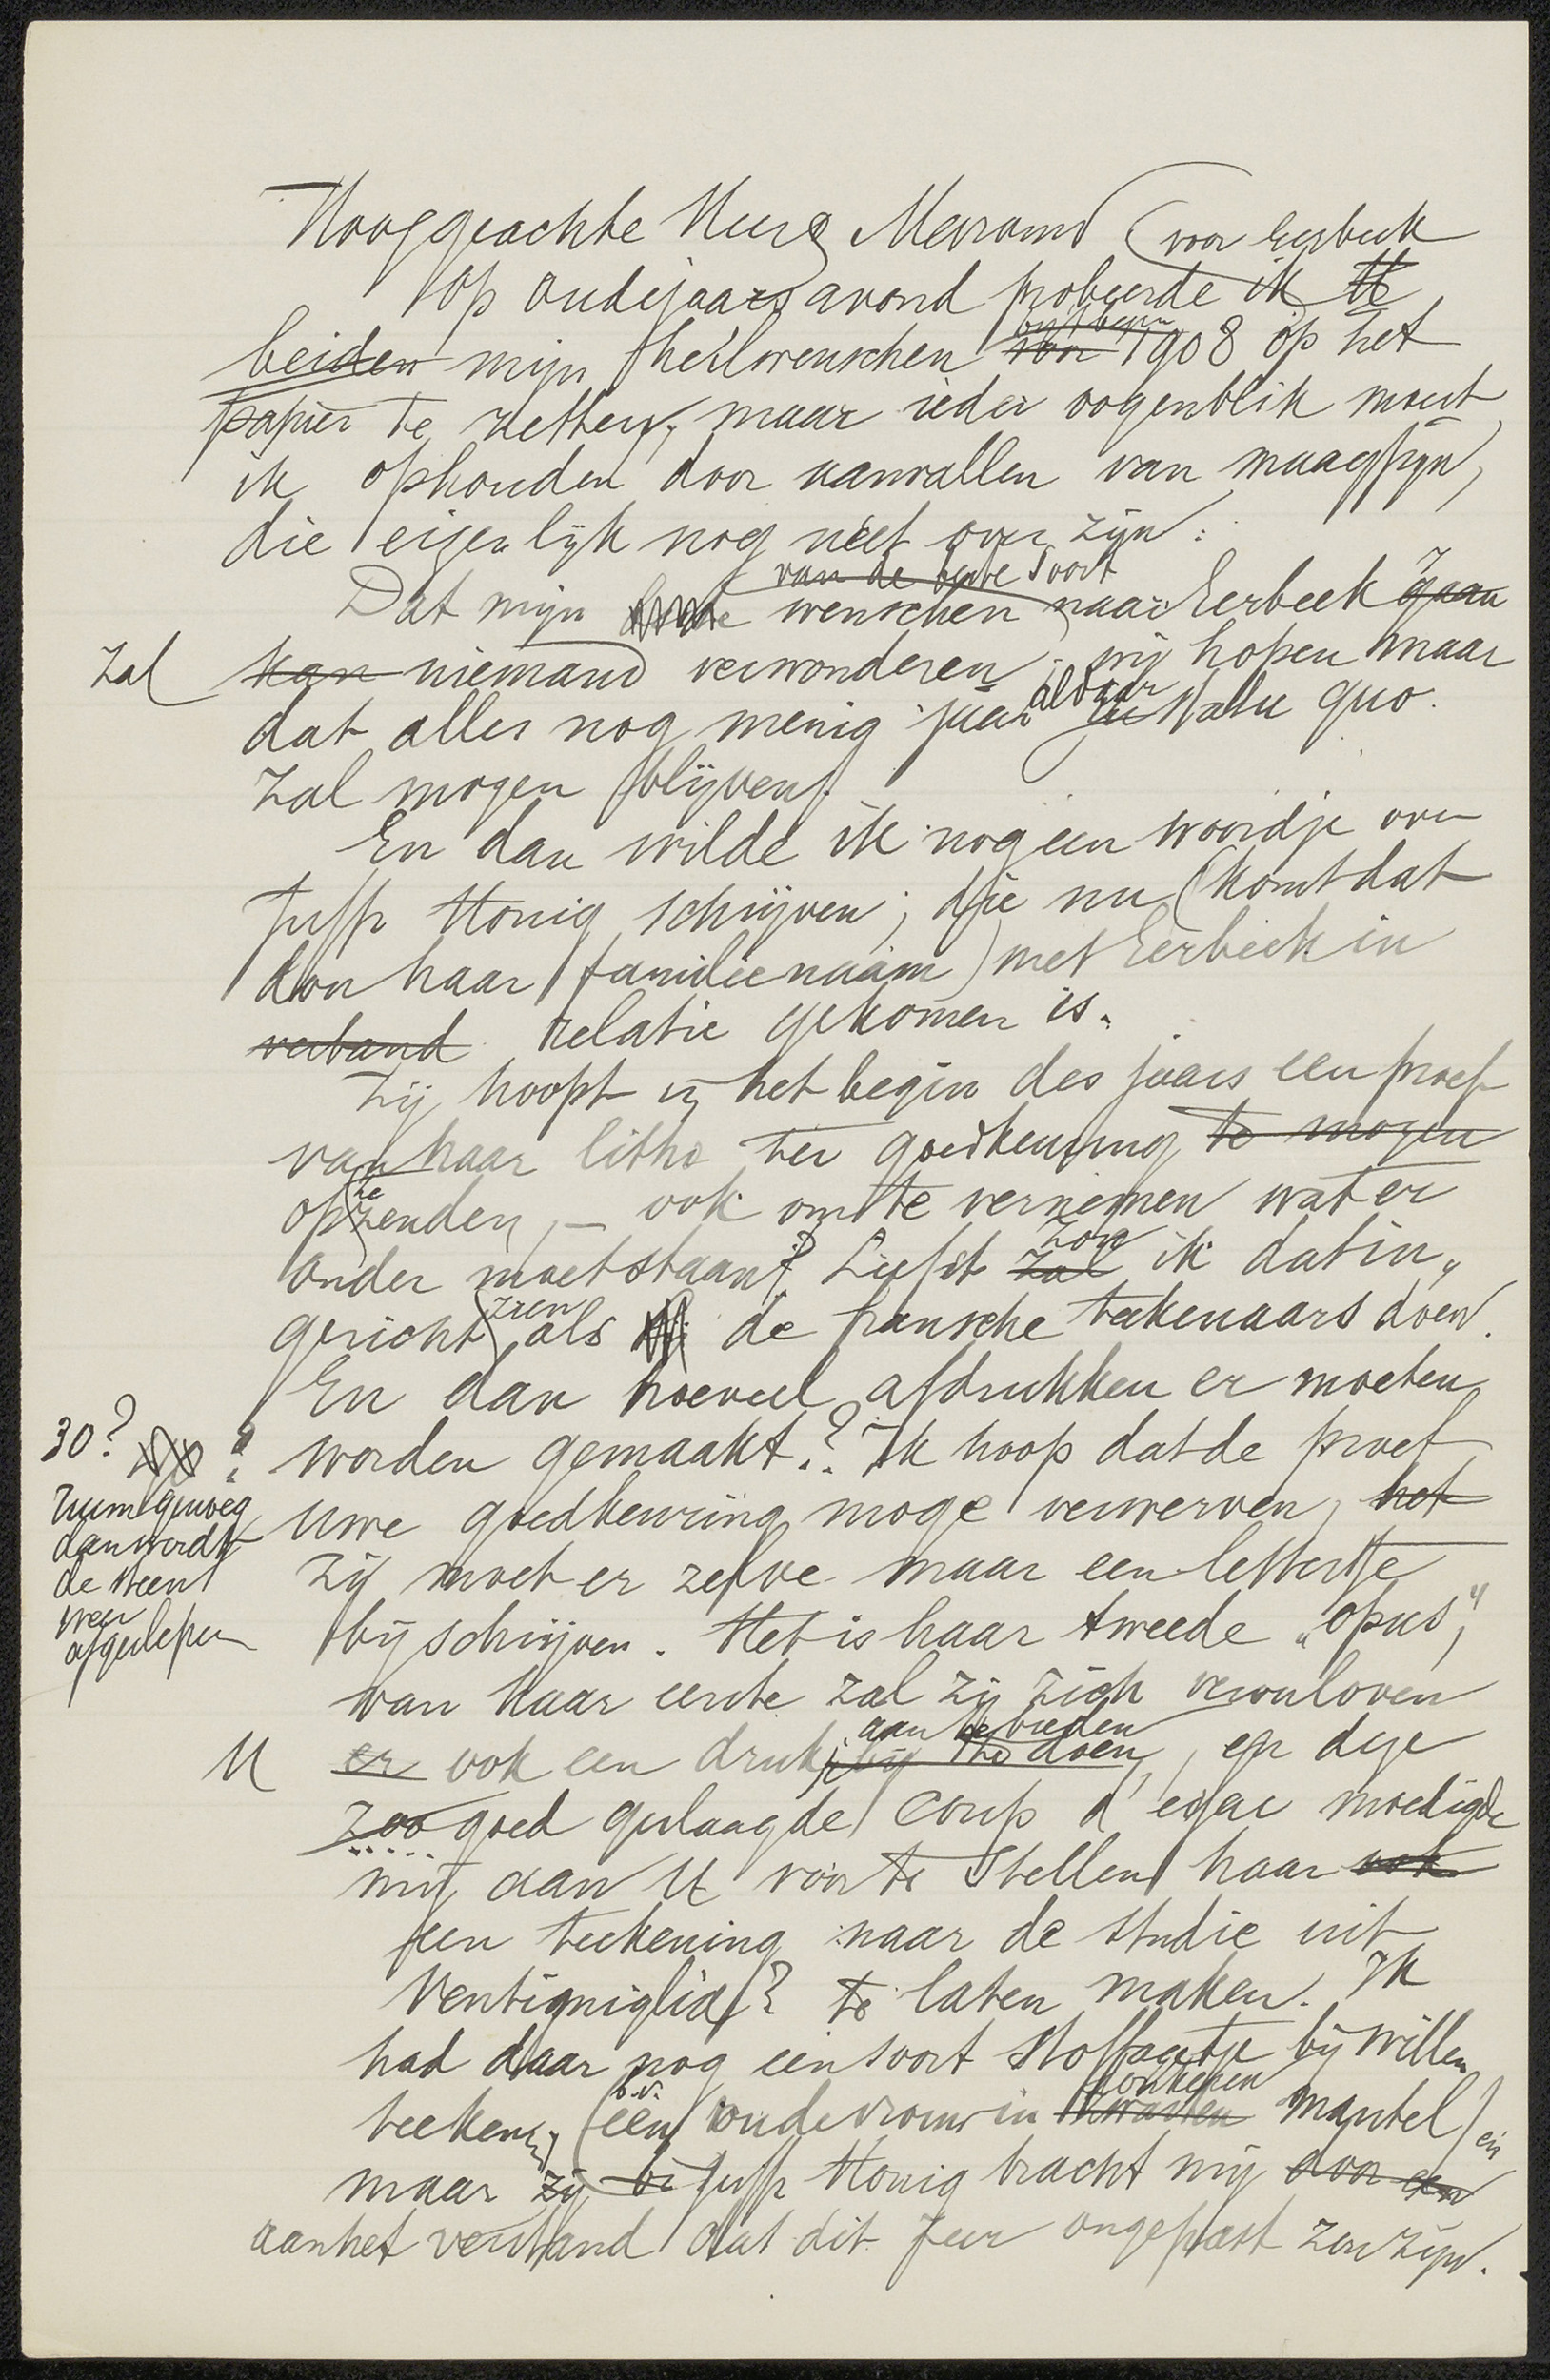 Hooggeachte Heer & Mevrouw (voor Eerbeek
op oudejaarsavond probeerde ik te
beiden mijn heilwenschen bij 't begin voor 1908 op het
papier te zetten, maar ieder oogenblik moest
ik ophouden door aanvallen van maagpijn,
die eigenlijk nog niet over zijn.
van de beste soort
Dat mijn beste wenschen naar Eerbeek gaan
zal kan niemand verwonderen; wij hopen maar
dat alles nog menig jaar aldaar in statu quo.
zal mogen blijven.
En dan wilde ik nog een woordje over
Juffr Honig schrijven; die nu (komt dat
door haar familienaam) met Eerbeek in
verband relatie gekomen is.
Zij hoopt in het begin des jaars een proef
van haar litho ter goedkeuring te mogen
op te zenden, – ook om te vernemen wat er
onder moet staan? Liefst zal zou ik dat in„
gericht zien als de fransche teekenaars doen.
En dan hoeveel afdrukken er moeten
worden gemaakt? Ik hoop dat de proef
30?
ruim genoeg
dan wordt
de steen
weer
afgeslepen
uwe goedkeuring moge verwerven, het
zij moet er zelve maar een lettertje
bij schrijven. Het is haar tweede „opus",
van haar eerste zal zij zich veroorloven
U er ook een druk bij te doen aan te bieden, en deze
zoo goed geslaagde coup d'essai moedigde
mij aan U voor te stellen haar ook
een teekening naar de studie uit
Ventigniglia? te laten maken. Ik
had daar nog een soort stoffaatje bij willen
teekenen, (b.v. één oude vrouw in zwarten donkeren mantel) en
maar zij Juffr Honig bracht mij door een
aan het verstand dat dit zeer ongepast zou zijn.